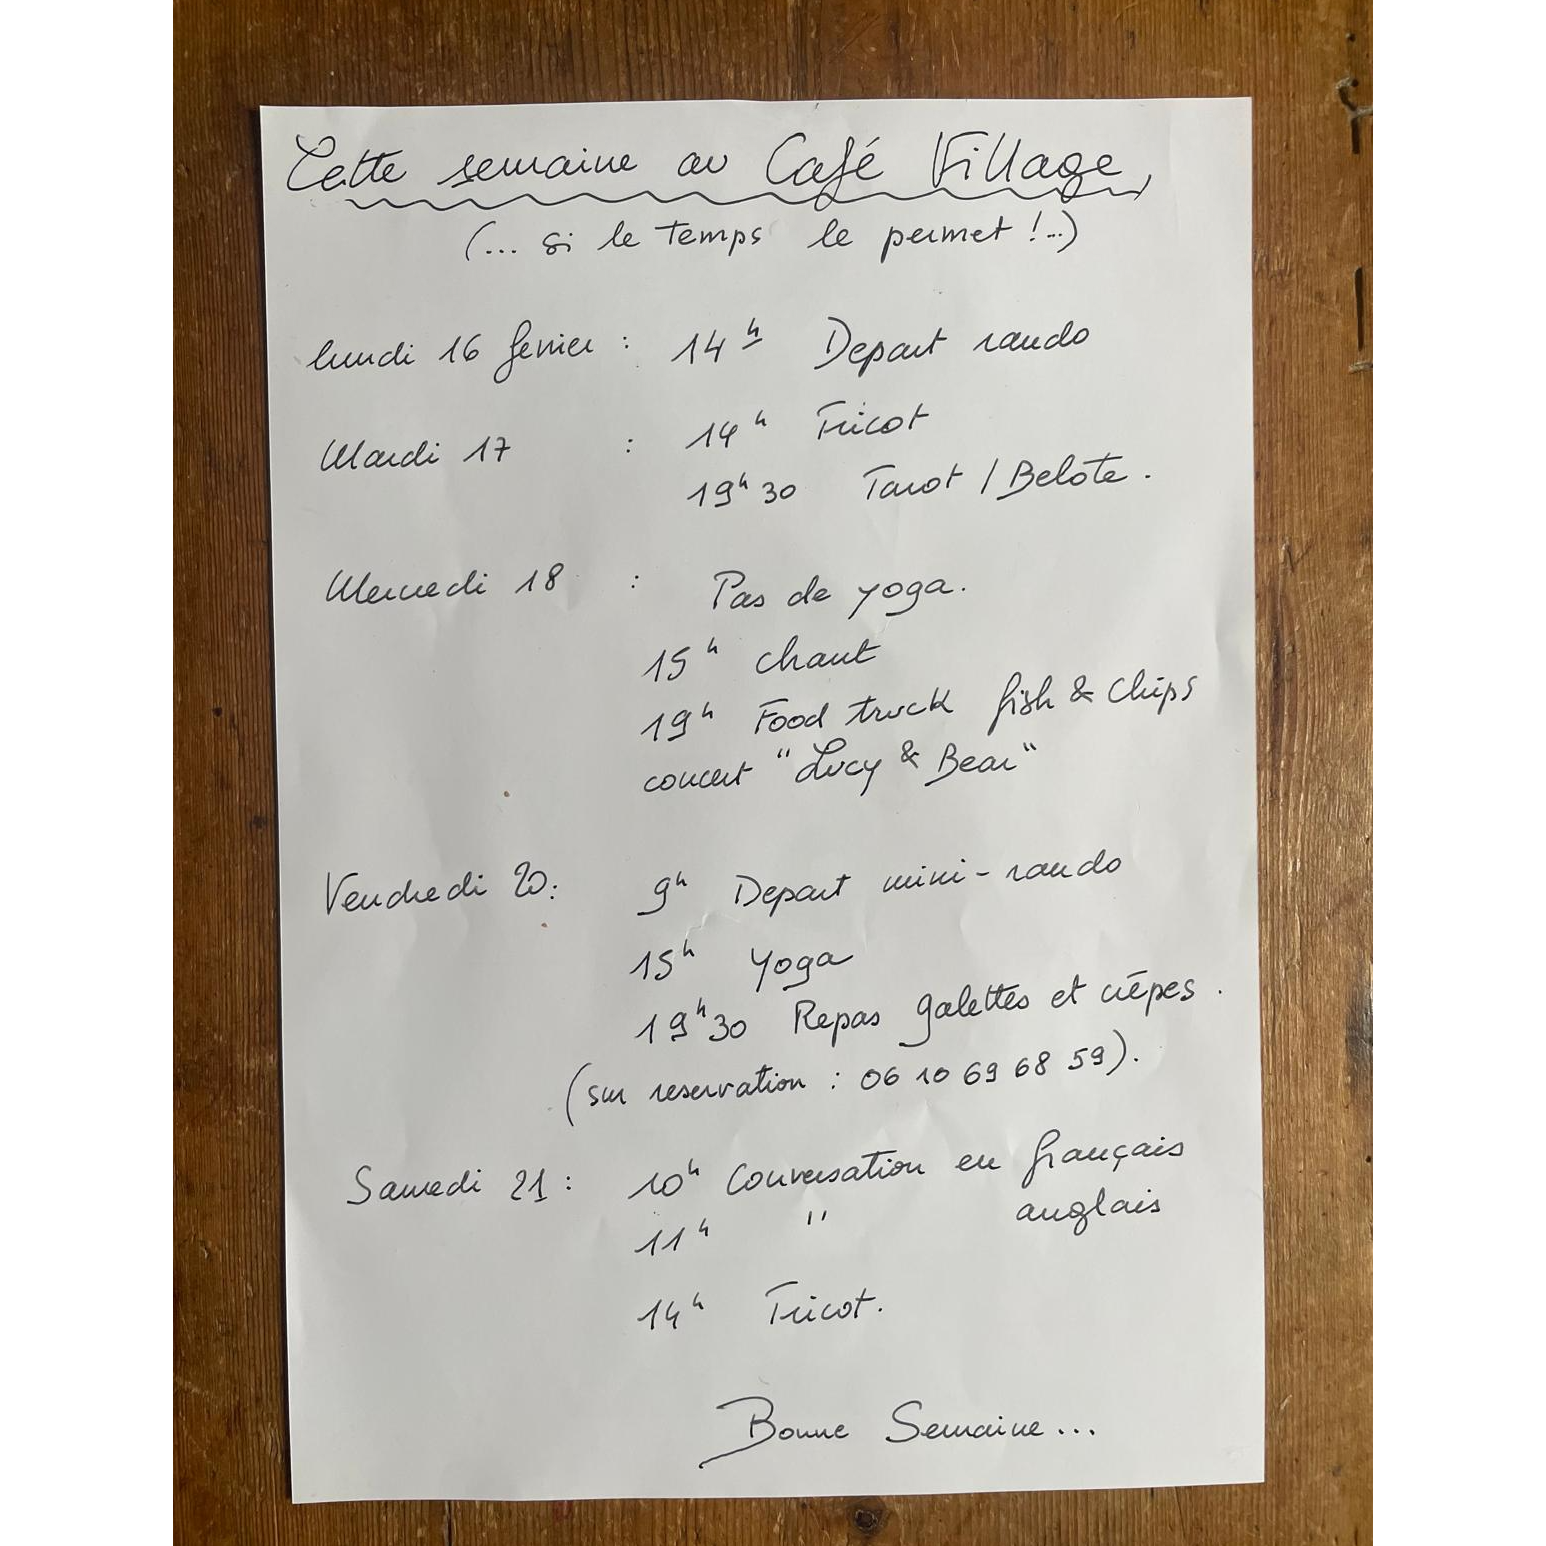 Cette semaine au Café Village,
(... si le temps le permet !...)
lundi 16 fevrier : 14h Depart rando
Mardi 17 : 14h Tricot
19h30 Tarot / Belote.
Mercredi 18 : Pas de yoga.
15h chant
19h Food truck fish & chips
concert "Lucy & Bear"
Vendredi 20 : 9h Depart mini-rando
15h Yoga
19h30 Repas galettes et crêpes.
(sur reservation : 06 10 69 68 59).
Samedi 21 : 10h Conversation en français
11h " anglais
14h Tricot.
Bonne Semaine...